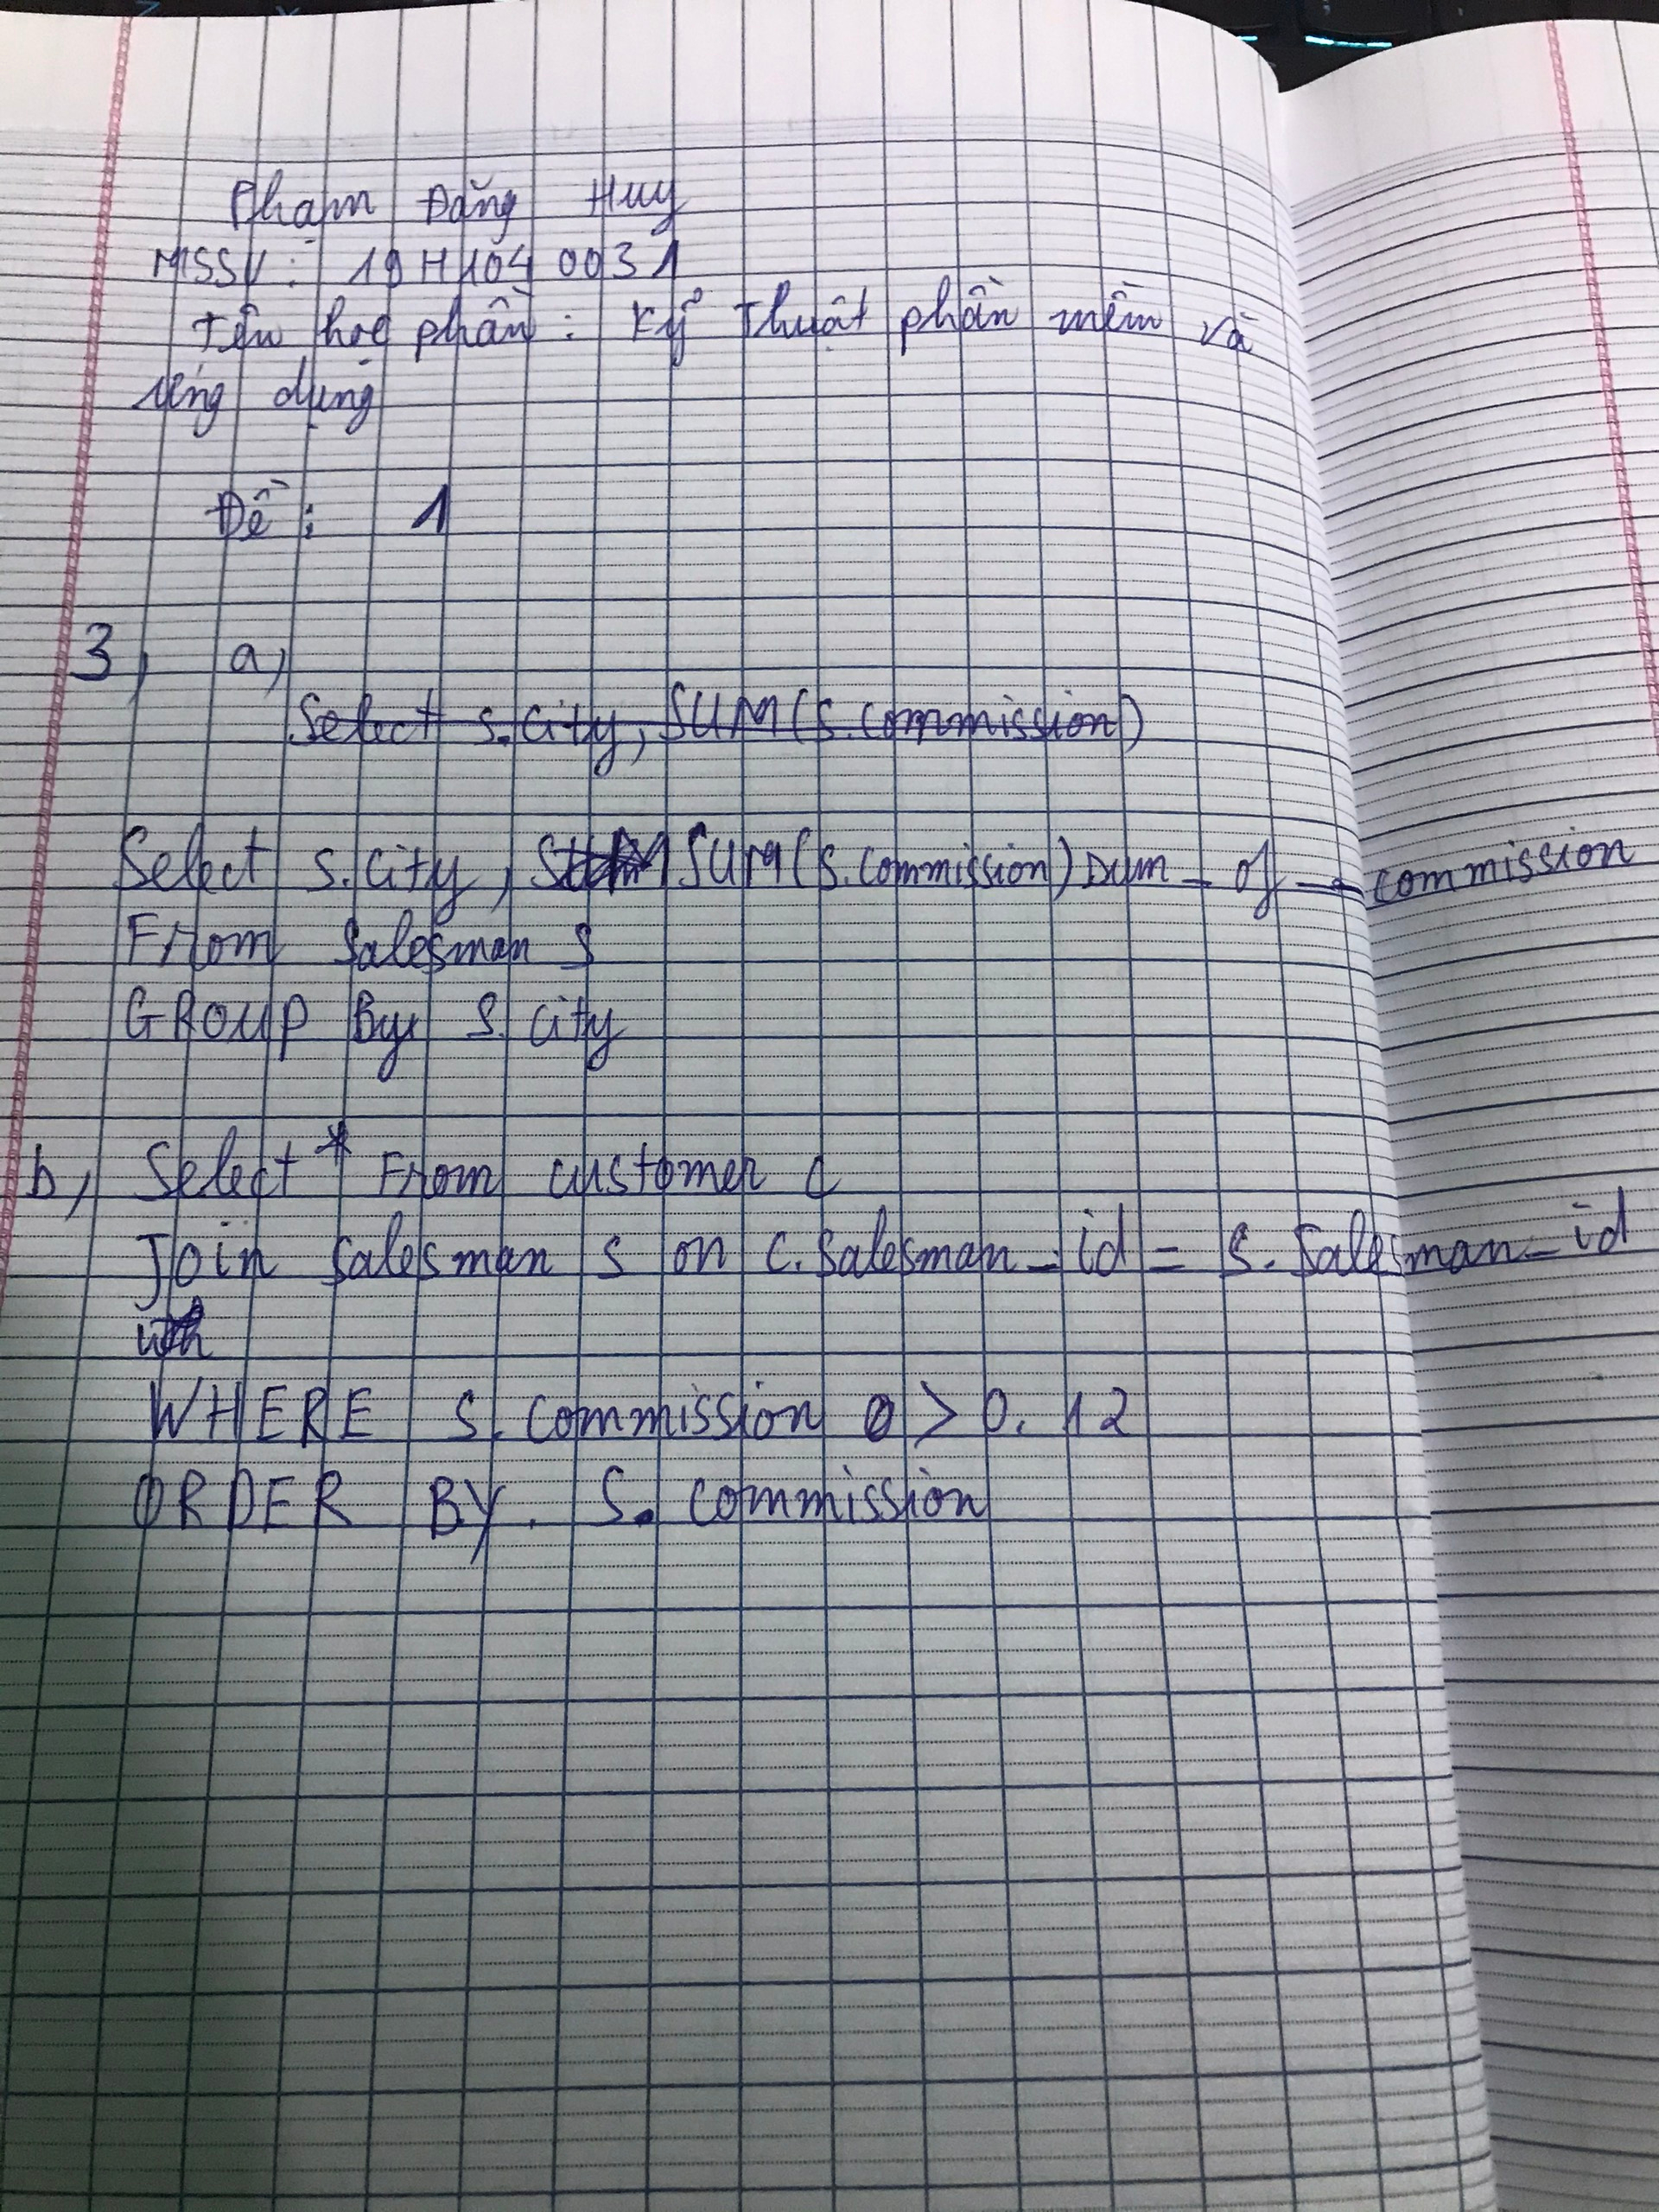 Phạm Đăng Huy
MSSV: 19H1040031
Tên học phần: Kỹ Thuật phần mềm và
ứng dụng
Đề: 1
3, a,
Select s.city, SUM(s.commission)
Select s.city, SUM(s.commission) Sum_of_commission
From Salesman S
GROUP By S.city
b, Select * From customer C
Join Salesman S on C.Salesman_id = S.Salesman_id
WHERE S.commission > 0.12
ORDER BY S.commission